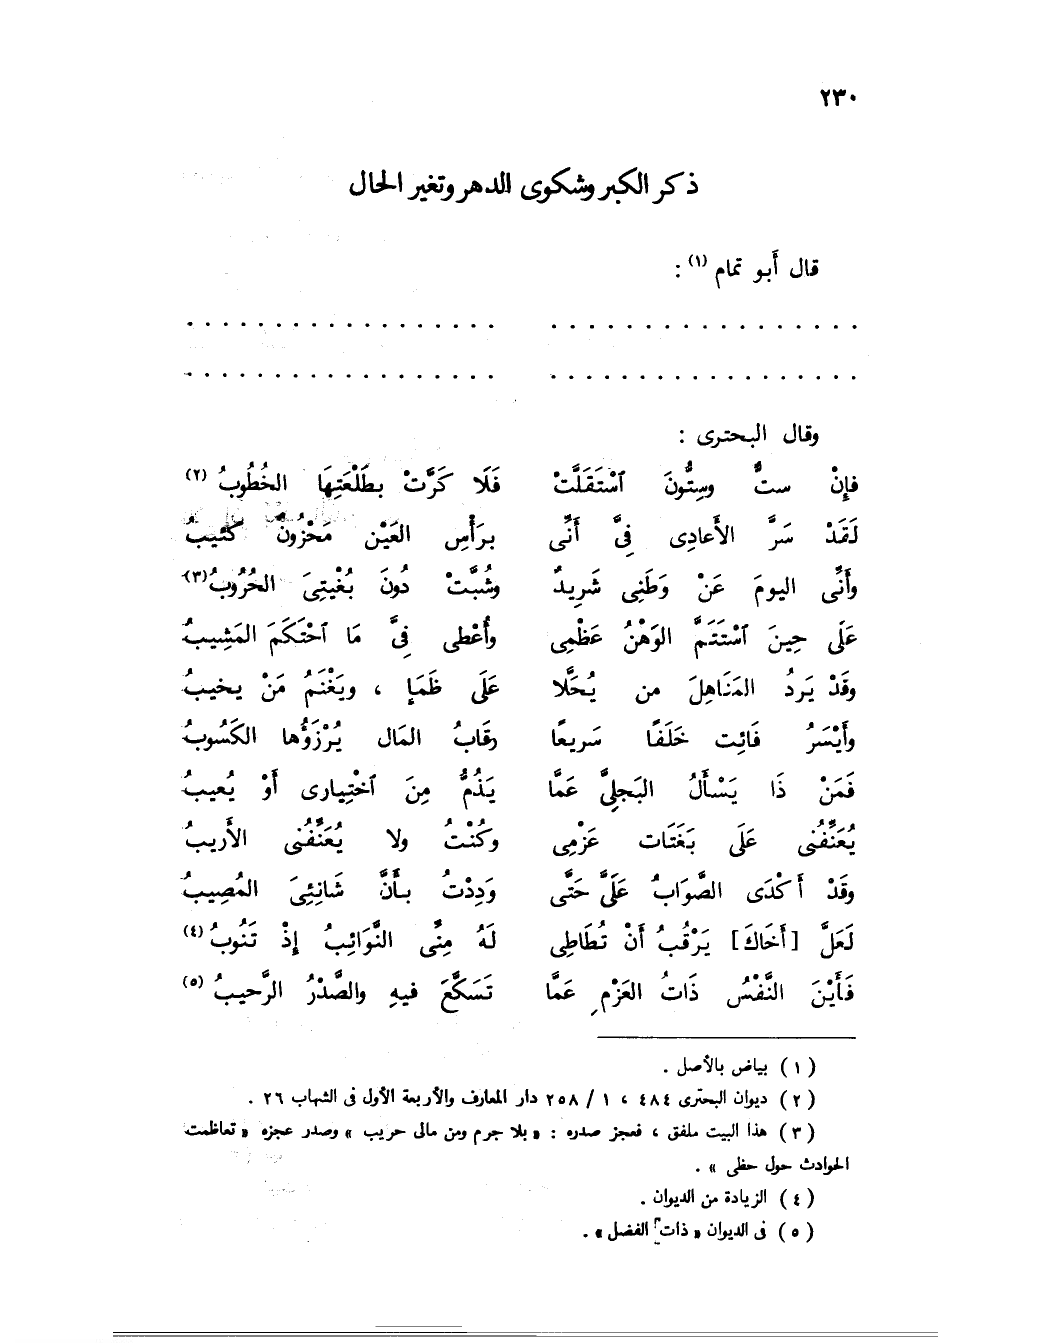 ٢٣٠
ذكر الكبر وشكوى الدهر وتغير الحال
قال أبو تمام (١) :
. . . . . . . . . . . . . . . . . . . . . . . . . . . . . . . . . . .
. . . . . . . . . . . . . . . . . . . . . . . . . . . . . . . . . . .
وقال البحترى :
فإِنْ ستٌّ وسِتُّونَ ٱسْتَقَلَّتْ فَلَا كَرَّتْ بطَلْعَتِهَا الخُطُوبُ (٢)
لَقَدْ سَرَّ الأَعادِى فِىَّ أَنِّى برَأْسِ العَيْن مَحْزُونٌ كَئيبُ
وأَنِّى اليومَ عَنْ وَطَنِى شَريدٌ وشُبَّتْ دُونَ بُغْيتِىَ الحُرُوبُ (٣)
عَلَى حِينَ ٱسْتَتَمَّ الوَهْنُ عَظْمِى وأُعْطى فِىَّ مَا ٱحْتَكَمَ المَشِيبُ
وقَدْ يَردُ المَنَاهِلَ من يُحَلَّا عَلَى ظَمَإٍ ، ويَغْنَمُ مَنْ يخيبُ
وأَيْسَرُ فَائِت خَلَفًا سَريعًا رقَابُ المَال يُرْزَؤُها الكَسُوبُ
فَمَنْ ذَا يَسْأَلُ البَجلِىَّ عَمَّا يَذُمُّ مِنَ ٱخْتِيارى أَوْ يُعيبُ
يُعَنِّفُنى عَلَى بَغَتَات عَزْمِى وكُنْتُ ولا يُعَنِّفُنى الأَريبُ
وقَدْ أَكْدَى الصَّوَابُ عَلَىَّ حَتَّى وَدِدْتُ بأَنَّ شَانِئِىَ المُصِيبُ
لَعَلَّ [أَخَاكَ] يَرْقُبُ أَنْ تُطَاطِى لَهُ مِنِّى النَّوَائِبُ إِذْ تَنُوبُ (٤)
فَأَيْنَ النَّفْسُ ذَاتُ العَزْمِ عَمَّا تَسَكَّعَ فيهِ والصَّدْرُ الرَّحيبُ (٥)
( ١ ) بياض بالأصل .
( ٢ ) ديوان البحترى ٤٨٤ ، ١ / ٢٥٨ دار المعارف والأربعة الأول فى الشهاب ٢٦ .
( ٣ ) هذا البيت ملفق ، فعجز صدره : « بلا جرم ومن مالى حريب » وصدر عجزه « تعاظمت
الحوادث حول حظى » .
( ٤ ) الزيادة من الديوان .
( ٥ ) فى الديوان « ذات الفضل » .